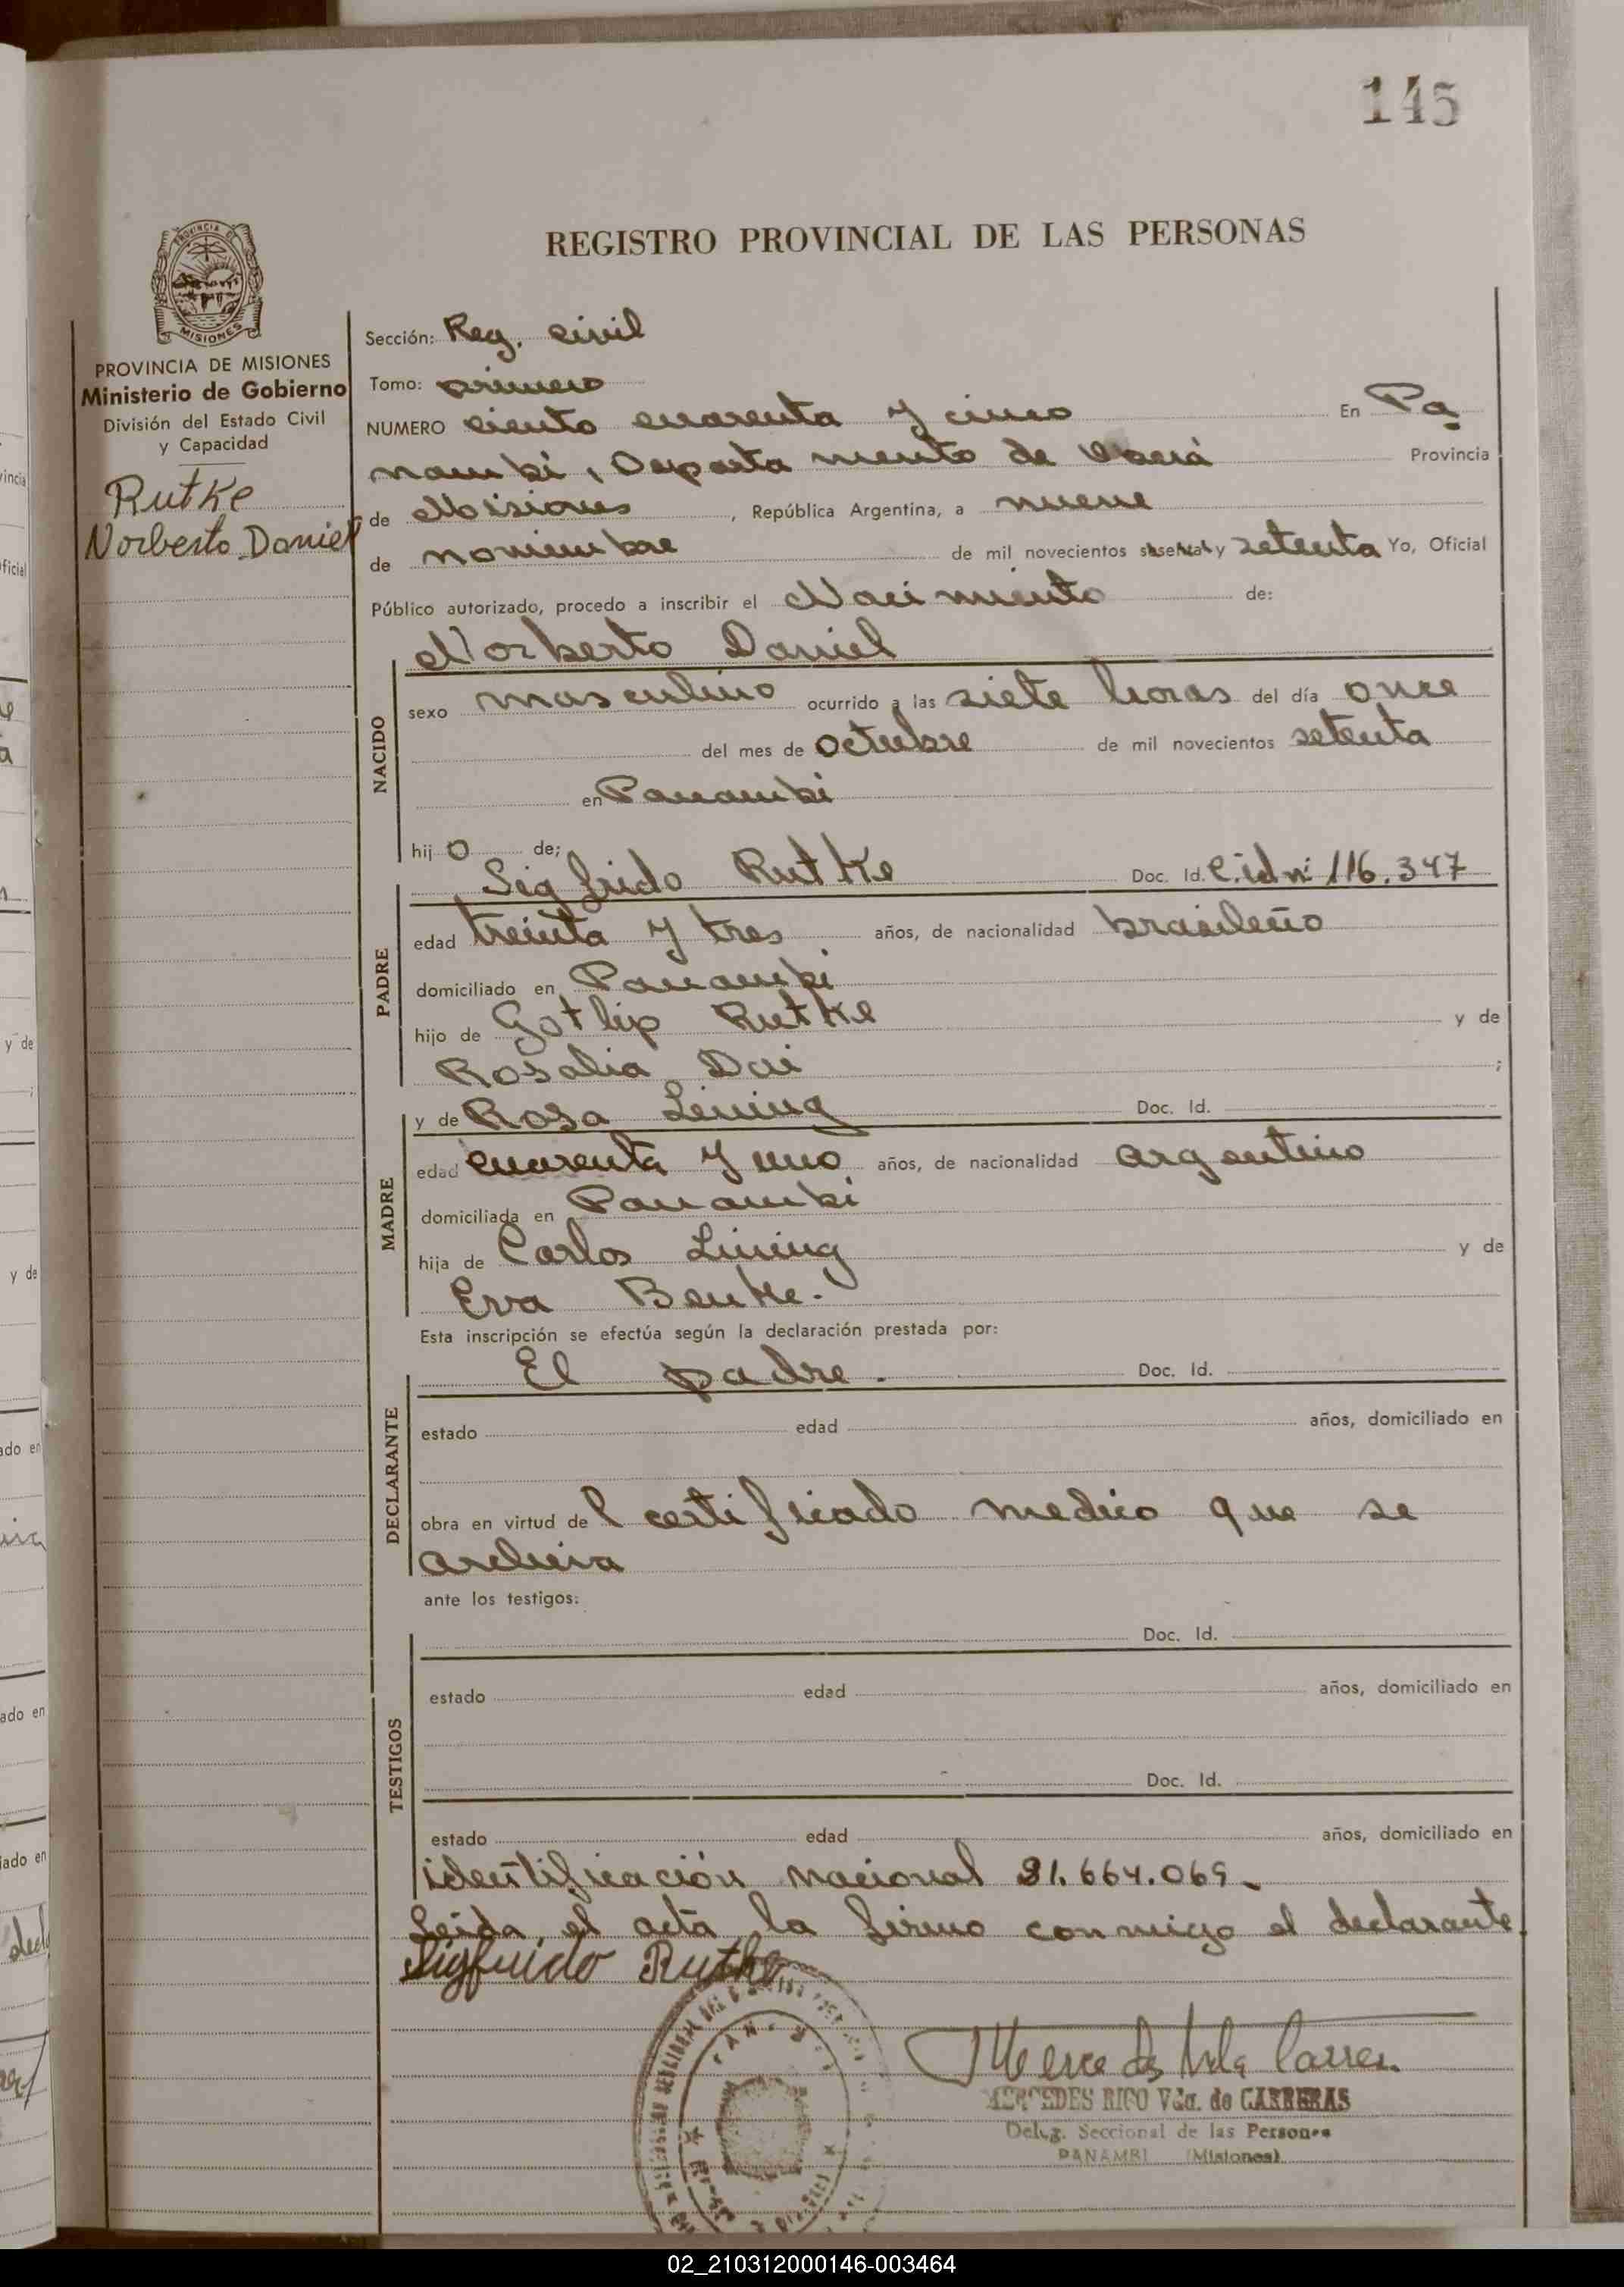 145
REGISTRO PROVINCIAL DE LAS PERSONAS
PROVINCIA DE
MISIONES
PROVINCIA DE MISIONES
Ministerio de Gobierno
División del Estado Civil
y Capacidad
Rutke
Norberto Daniel
Sección: Reg. civil
Tomo: primero
NUMERO ciento cuarenta y cinco En Pa
nambi, Departamento de Oberá Provincia
de Misiones, República Argentina, a nueve
de noviembre de mil novecientos sesenta y setenta Yo, Oficial
Público autorizado, procedo a inscribir el Nacimiento de:
Norberto Daniel
NACIDO
sexo masculino ocurrido a las siete horas del día once
del mes de octubre de mil novecientos setenta
en Panambi
hijo de;
PADRE
Sigfrido Rutke Doc. Id. C.id nº 116.347
edad treinta y tres años, de nacionalidad brasileño
domiciliado en Panambi
hijo de Gotlip Rutke y de
Rosalia Dai ;
MADRE
y de Rosa Lining Doc. Id.
edad cuarenta y uno años, de nacionalidad argentino
domiciliada en Panambi
hija de Carlos Lining y de
Eva Beutke.
Esta inscripción se efectúa según la declaración prestada por:
DECLARANTE
El padre. Doc. Id.
estado edad años, domiciliado en
obra en virtud del certificado medico que se
archiva
ante los testigos:
TESTIGOS
Doc. Id.
estado edad años, domiciliado en
Doc. Id.
estado edad años, domiciliado en
identificación nacional 21.664.069.
Leida el acta, la firmo conmigo el declarante
Sigfrido Rutke
MERCEDES RICO Vda. de CARRERAS
Deleg. Seccional de las Personas
PANAMBI (Misiones)
02_210312000146-003464